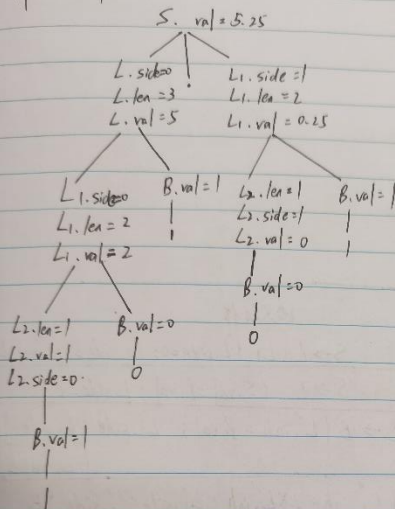 S. val = 5.25
L. side=0
L. len = 3
L. val = 5
.
L1. side = 1
L1. len = 2
L1. val = 0.25
L1. side=0
L1. len = 2
L1. val = 2
B. val = 1
1
L2. len = 1
L2. side = 1
L2. val = 0
B. val = 1
1
B. val = 0
0
L2. len = 1
L2. val = 1
L2. side = 0
B. val = 0
0
B. val = 1
1